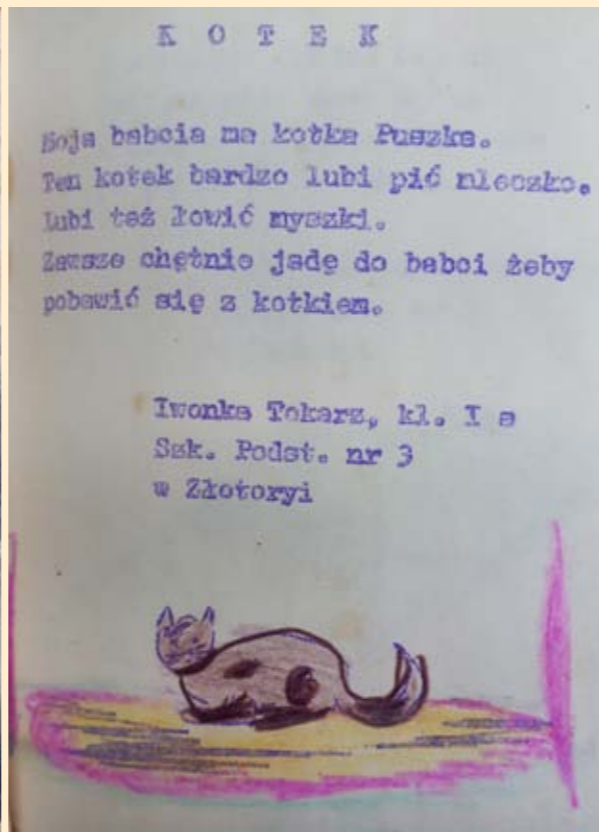 K O T E K
Moja babcia ma kotka Puszka.
Ten kotek bardzo lubi pić mleczko.
Lubi też łowić myszki.
Zawsze chętnie jadę do babci żeby
pobawić się z kotkiem.
Iwonka Tokarz, kl. I a
Szk. Podst. nr 3
w Złotoryi